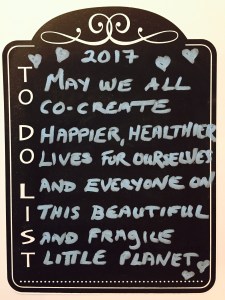 2017
TO DO LIST
MAY WE ALL
CO-CREATE
HAPPIER, HEALTHIER
LIVES FOR OURSELVES
AND EVERYONE ON
THIS BEAUTIFUL
AND FRAGILE
LITTLE PLANET